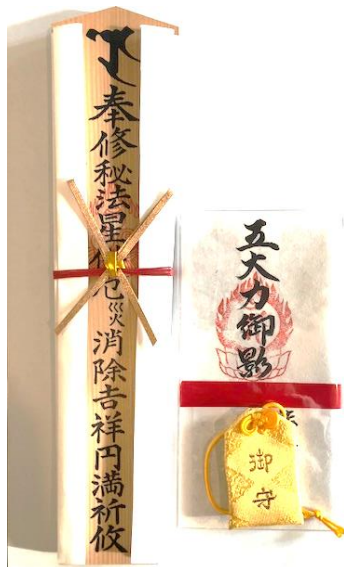 奉修秘法星供厄災消除吉祥円満祈攸
五大力御影
御守